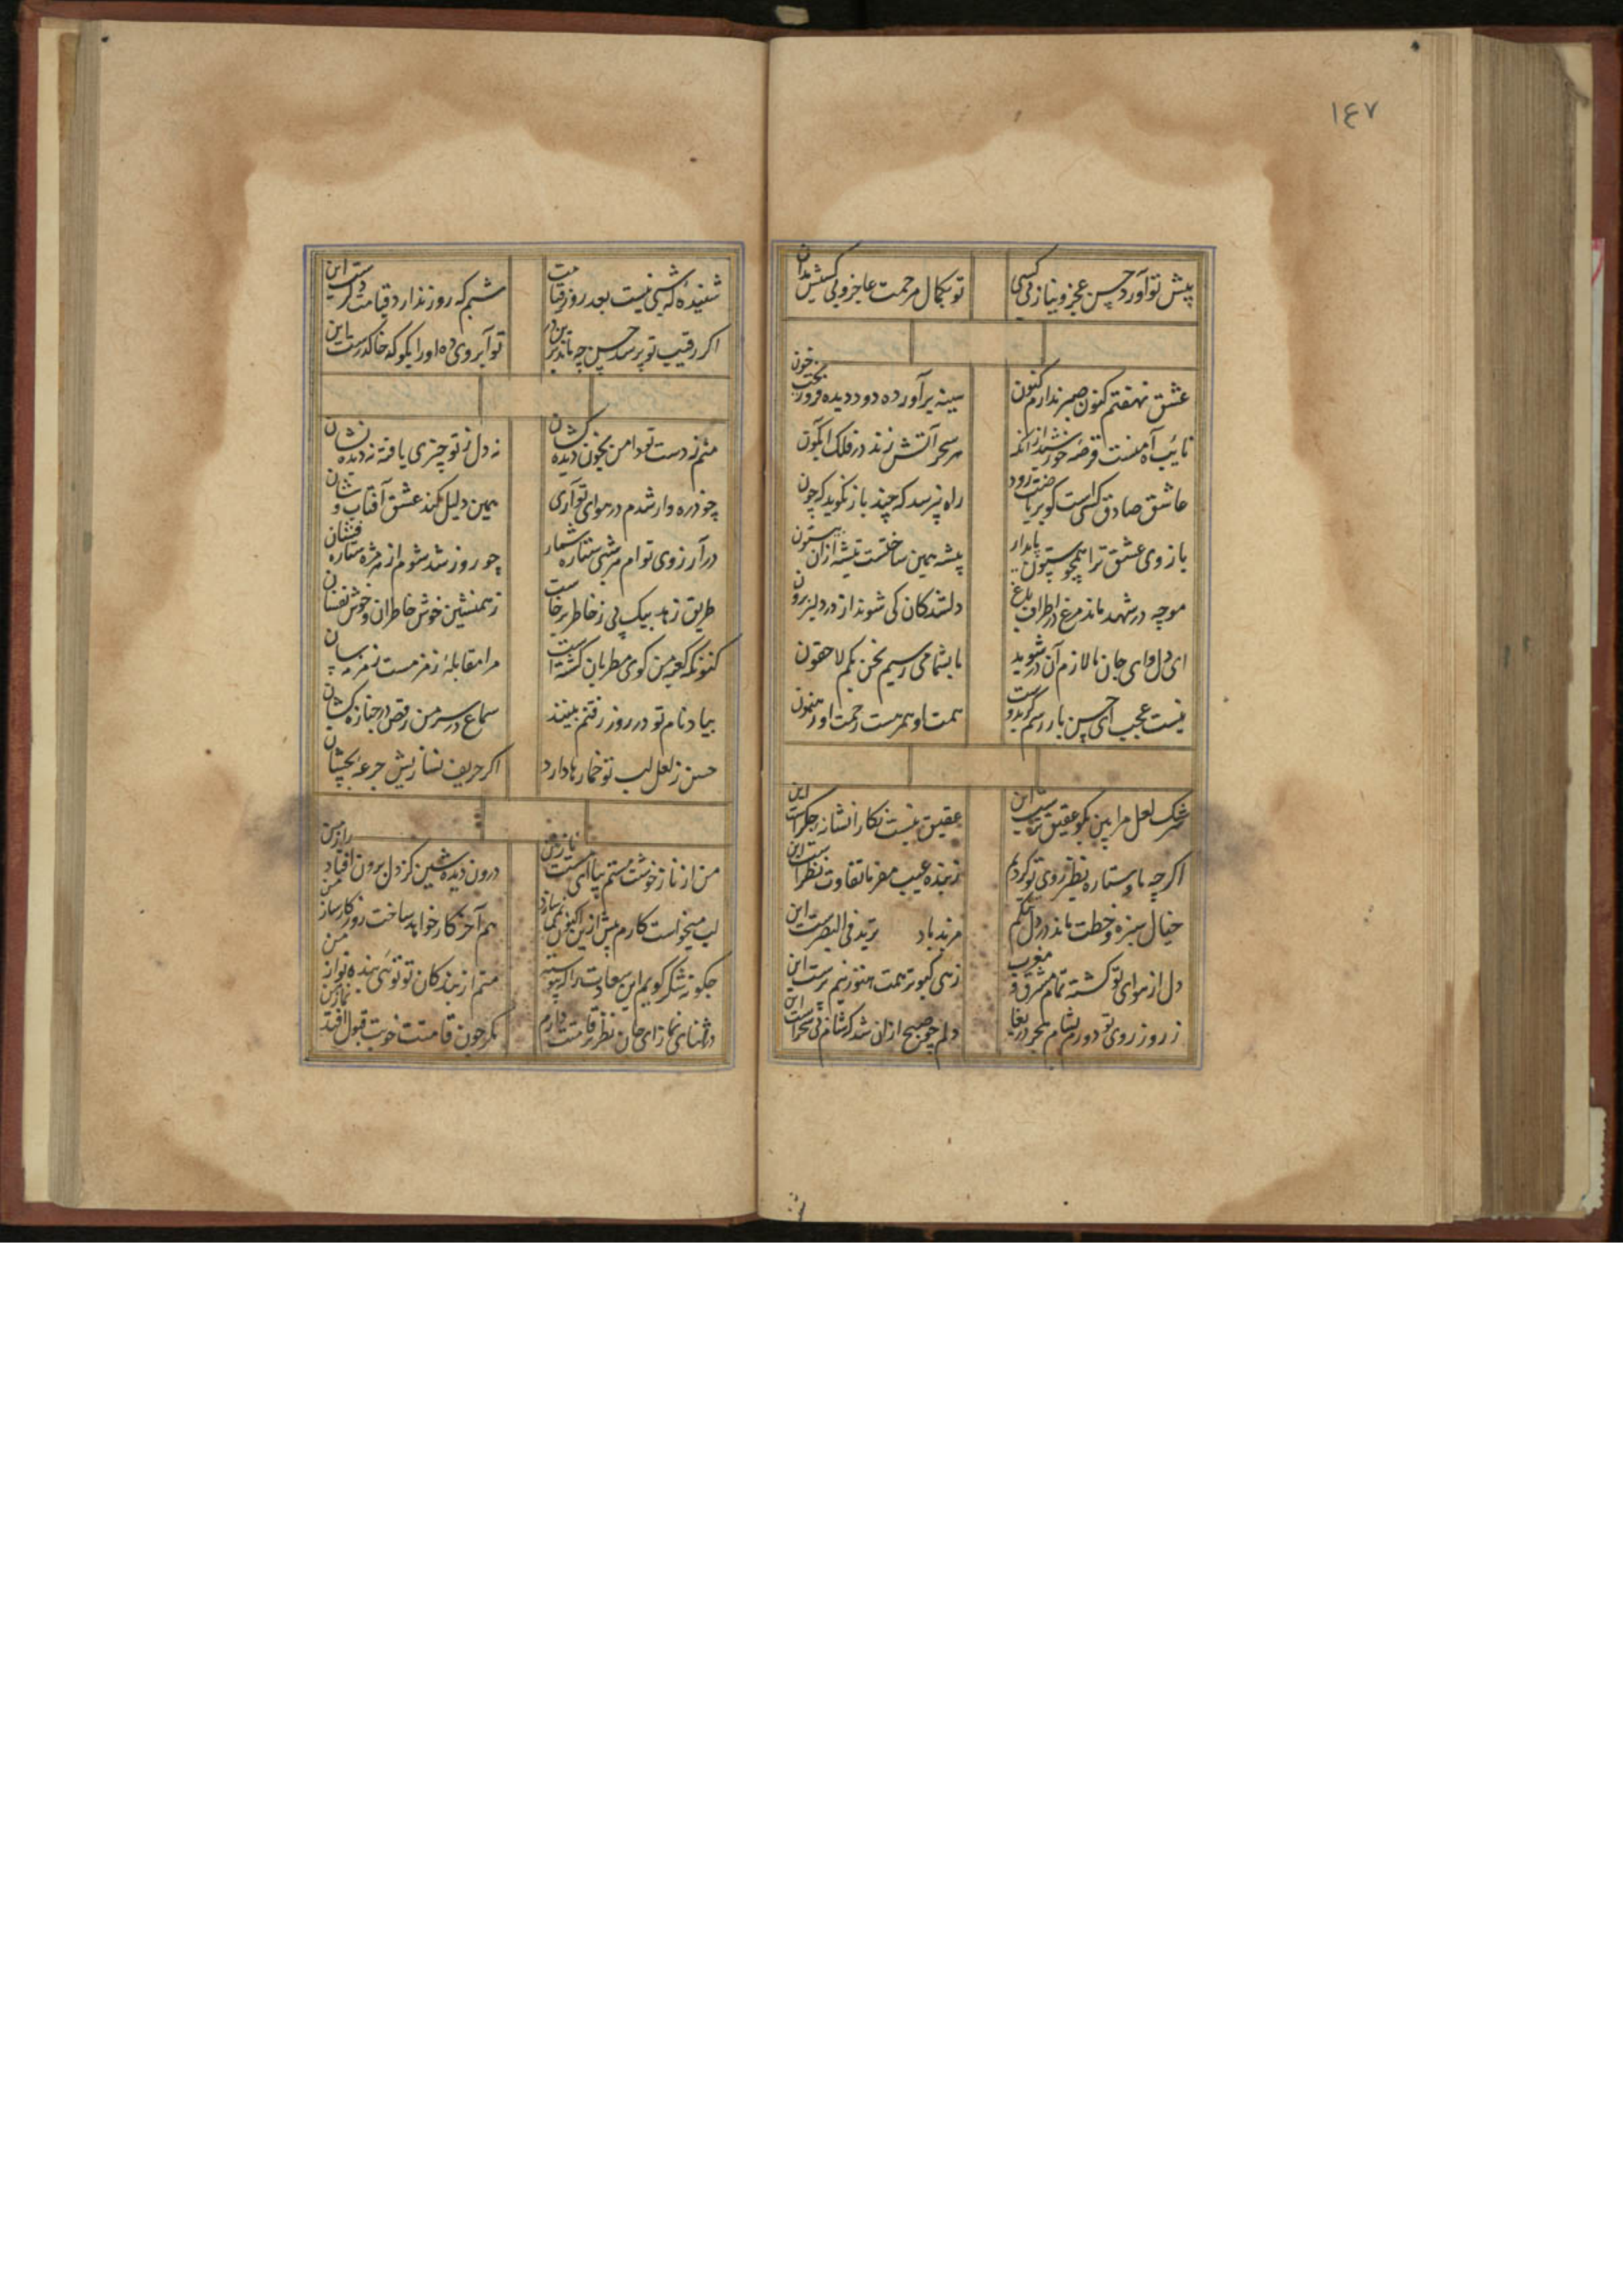 ١٤٧
پیش تو آورد حسن عجز و نیاز کسی
تو بکمال مرحمت عاجز و بی کسش مدان
عشق نهفتم کنون صبر ندارم کنون
سینه برآورده دود دیده فرو ریخت خون
نائب آه منست قرصهٔ خورشید از انکه
هر سحر آتش زند در فلک آبگون
عاشق صادق کسی است کو بریاضت رود
راه نپرسد که چند باز نکوید که چون
بازوی عشق ترا همچو ستون پایدار
پیشه همین ساختست تیشه ازان بیستون
موچه در شهد ماند مرغ در اطراف باغ
دلشدکان کی شوند از در دلبر برون
ای دل وای جان ما لازم آن در شوید
ما بشما می رسیم نحن بکم لاحقون
نیست عجب ای حسن یار رسم کرد دوست
همت او همرهست رحمت او رهنمون
سرشک لعل مرا بین مکو عقیق ترست این
عقیق نیست نکارا نشانهٔ جکرست این
اکرچه ماه و ستاره نظیر روی تو کردیم
ز بنده عیب مفرما تفاوت نظرست این
خیال سبزهٔ خطت ماند در دل تنکم
مزید باد یزید فی البصرست این
دل از هوای تو کشته تمام مشرق و مغرب
زهی کبوتر همت هنوز نیم پرست این
ز روز روی تو دورم بشام هجر دریغا
دلم چو صبح ازان شد که شام بی سحرست این
شنیدهٔ که شبی نیست بعد روز قیامت
شبم که روز ندارد قیامت دکرست این
اکر رقیب تو پرسد حسن چه ماند برین در
تو آبروی ده او را بکو که خاک درست این
منم ز دست تو دامن بخون دیده کشان
نه دل ز تو چیزی یافته نه دیده نشان
چو ذره وار شدم در هوای تو آری
همین دلیل کند عشق آفتاب وشان
در آرزوی توام هر شبی ستاره شمار
چو روز شد شوم از مژه ستاره فشان
طریق زهد بیک پی ز خاطر برخاست
ز همنشین خوش خاطران و خوش نفسان
کنونکه کعبهٔ من کوی مطربان کشته است
مرا مقابلهٔ زمزمست زمزمه سان
بیاد نام تو در روز رفتنم بینند
سماع در سر من رقص در جنازه کشان
حسن ز لعل لب تو خمارها دارد
اکر حریف نسازیش جرعهٔ بچشان
من از ناز خوشت مستم بیا ای مست ناز من
درون دیده شین کز دل برون افتاد راز من
لب میخواست کارم پیش ازین اکنون نمی سازد
هم آخر کار خواهد ساخت روزی کارساز من
چکونه شکر کویم این سعادت را که پیوسته
منم از بندکان تو توئی بنده نواز من
در اثنای نماز ای جان نظر بر قامتت دارم
مکر چون قامتت خوبت قبول افتد نماز من